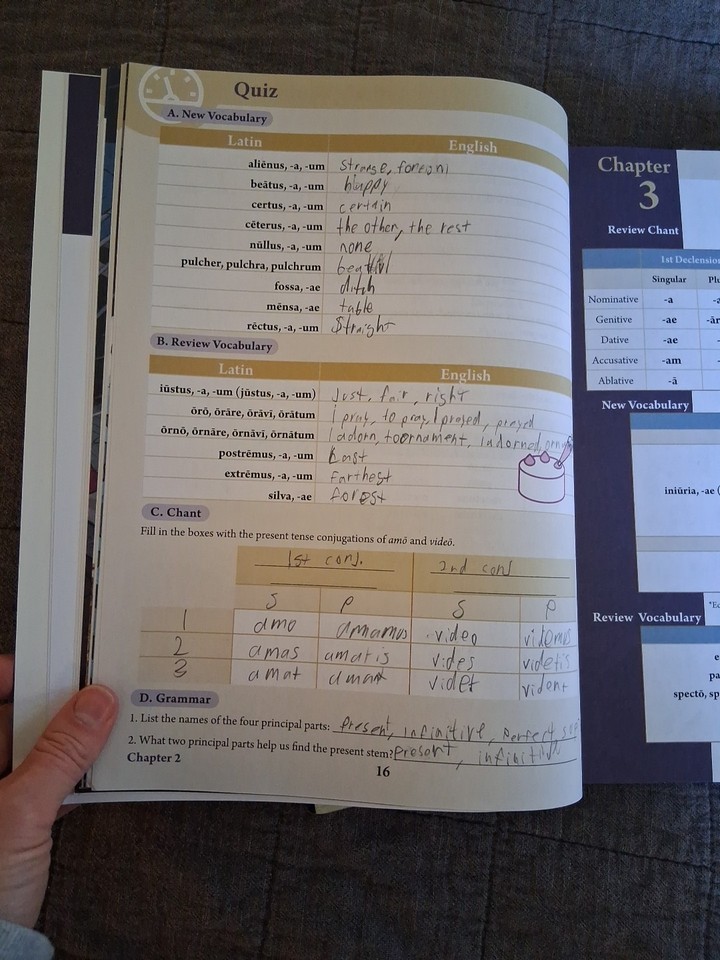 Quiz
A. New Vocabulary
Latin English
aliēnus, -a, -um
beātus, -a, -um happy
certus, -a, -um certain
cēterus, -a, -um the other, the rest
nūllus, -a, -um none
pulcher, pulchra, pulchrum
fossa, -ae ditch
mēnsa, -ae table
rēctus, -a, -um Straight
B. Review Vocabulary
Latin English
iūstus, -a, -um (jūstus, -a, -um) Just, fair, right
ōrō, ōrāre, ōrāvī, ōrātum I pray, to pray, I prayed, prayed
ōrnō, ōrnāre, ōrnāvī, ōrnātum I adorn, to ornament, I adorned,
postrēmus, -a, -um Last
extrēmus, -a, -um Farthest
silva, -ae forest
C. Chant
Fill in the boxes with the present tense conjugations of amō and videō.
1st conj. 2nd conj
S P S P
1 amo amamus video videmus
2 amas amatis vides videtis
3 amat amant videt vident
D. Grammar
1. List the names of the four principal parts: Present, infinitive, perfect,
2. What two principal parts help us find the present stem? Present, infinitive
Chapter 2
16
Chapter
3
Review Chant
1st Declension
Singular
Nominative -a
Genitive -ae
Dative -ae
Accusative -am
Ablative -ā
New Vocabulary
iniūria, -ae (
Review Vocabulary
spectō, sp